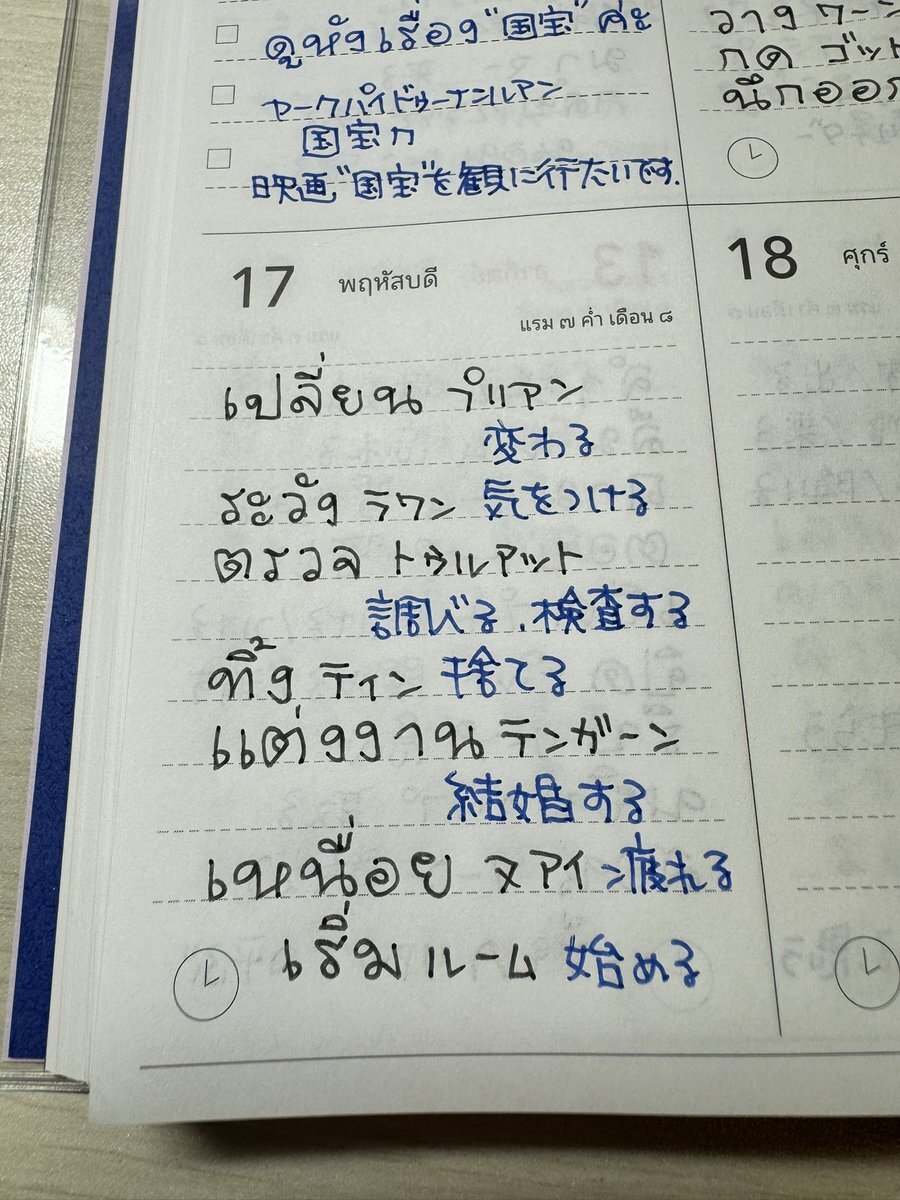 ดูหังเรื่อง "国宝" ค่ะ
ヤークパイドゥーナンルアン
国宝カ
映画 "国宝"を観に行たいです.
วาง ワーン
กด ゴット
นึกออก
17 พฤหัสบดี
แรม ๗ ค่ำ เดือน ๘
18 ศุกร์
เปลี่ยน プリアン
変わる
ระวัง ラワン 気をつける
ตรวจ トゥルアット
調べる、検査する
ทิ้ง ティン 捨てる
แต่งงาน テンガーン
結婚する
เหนื่อย ヌアイ 疲れる
เริ่ม ルーム 始める